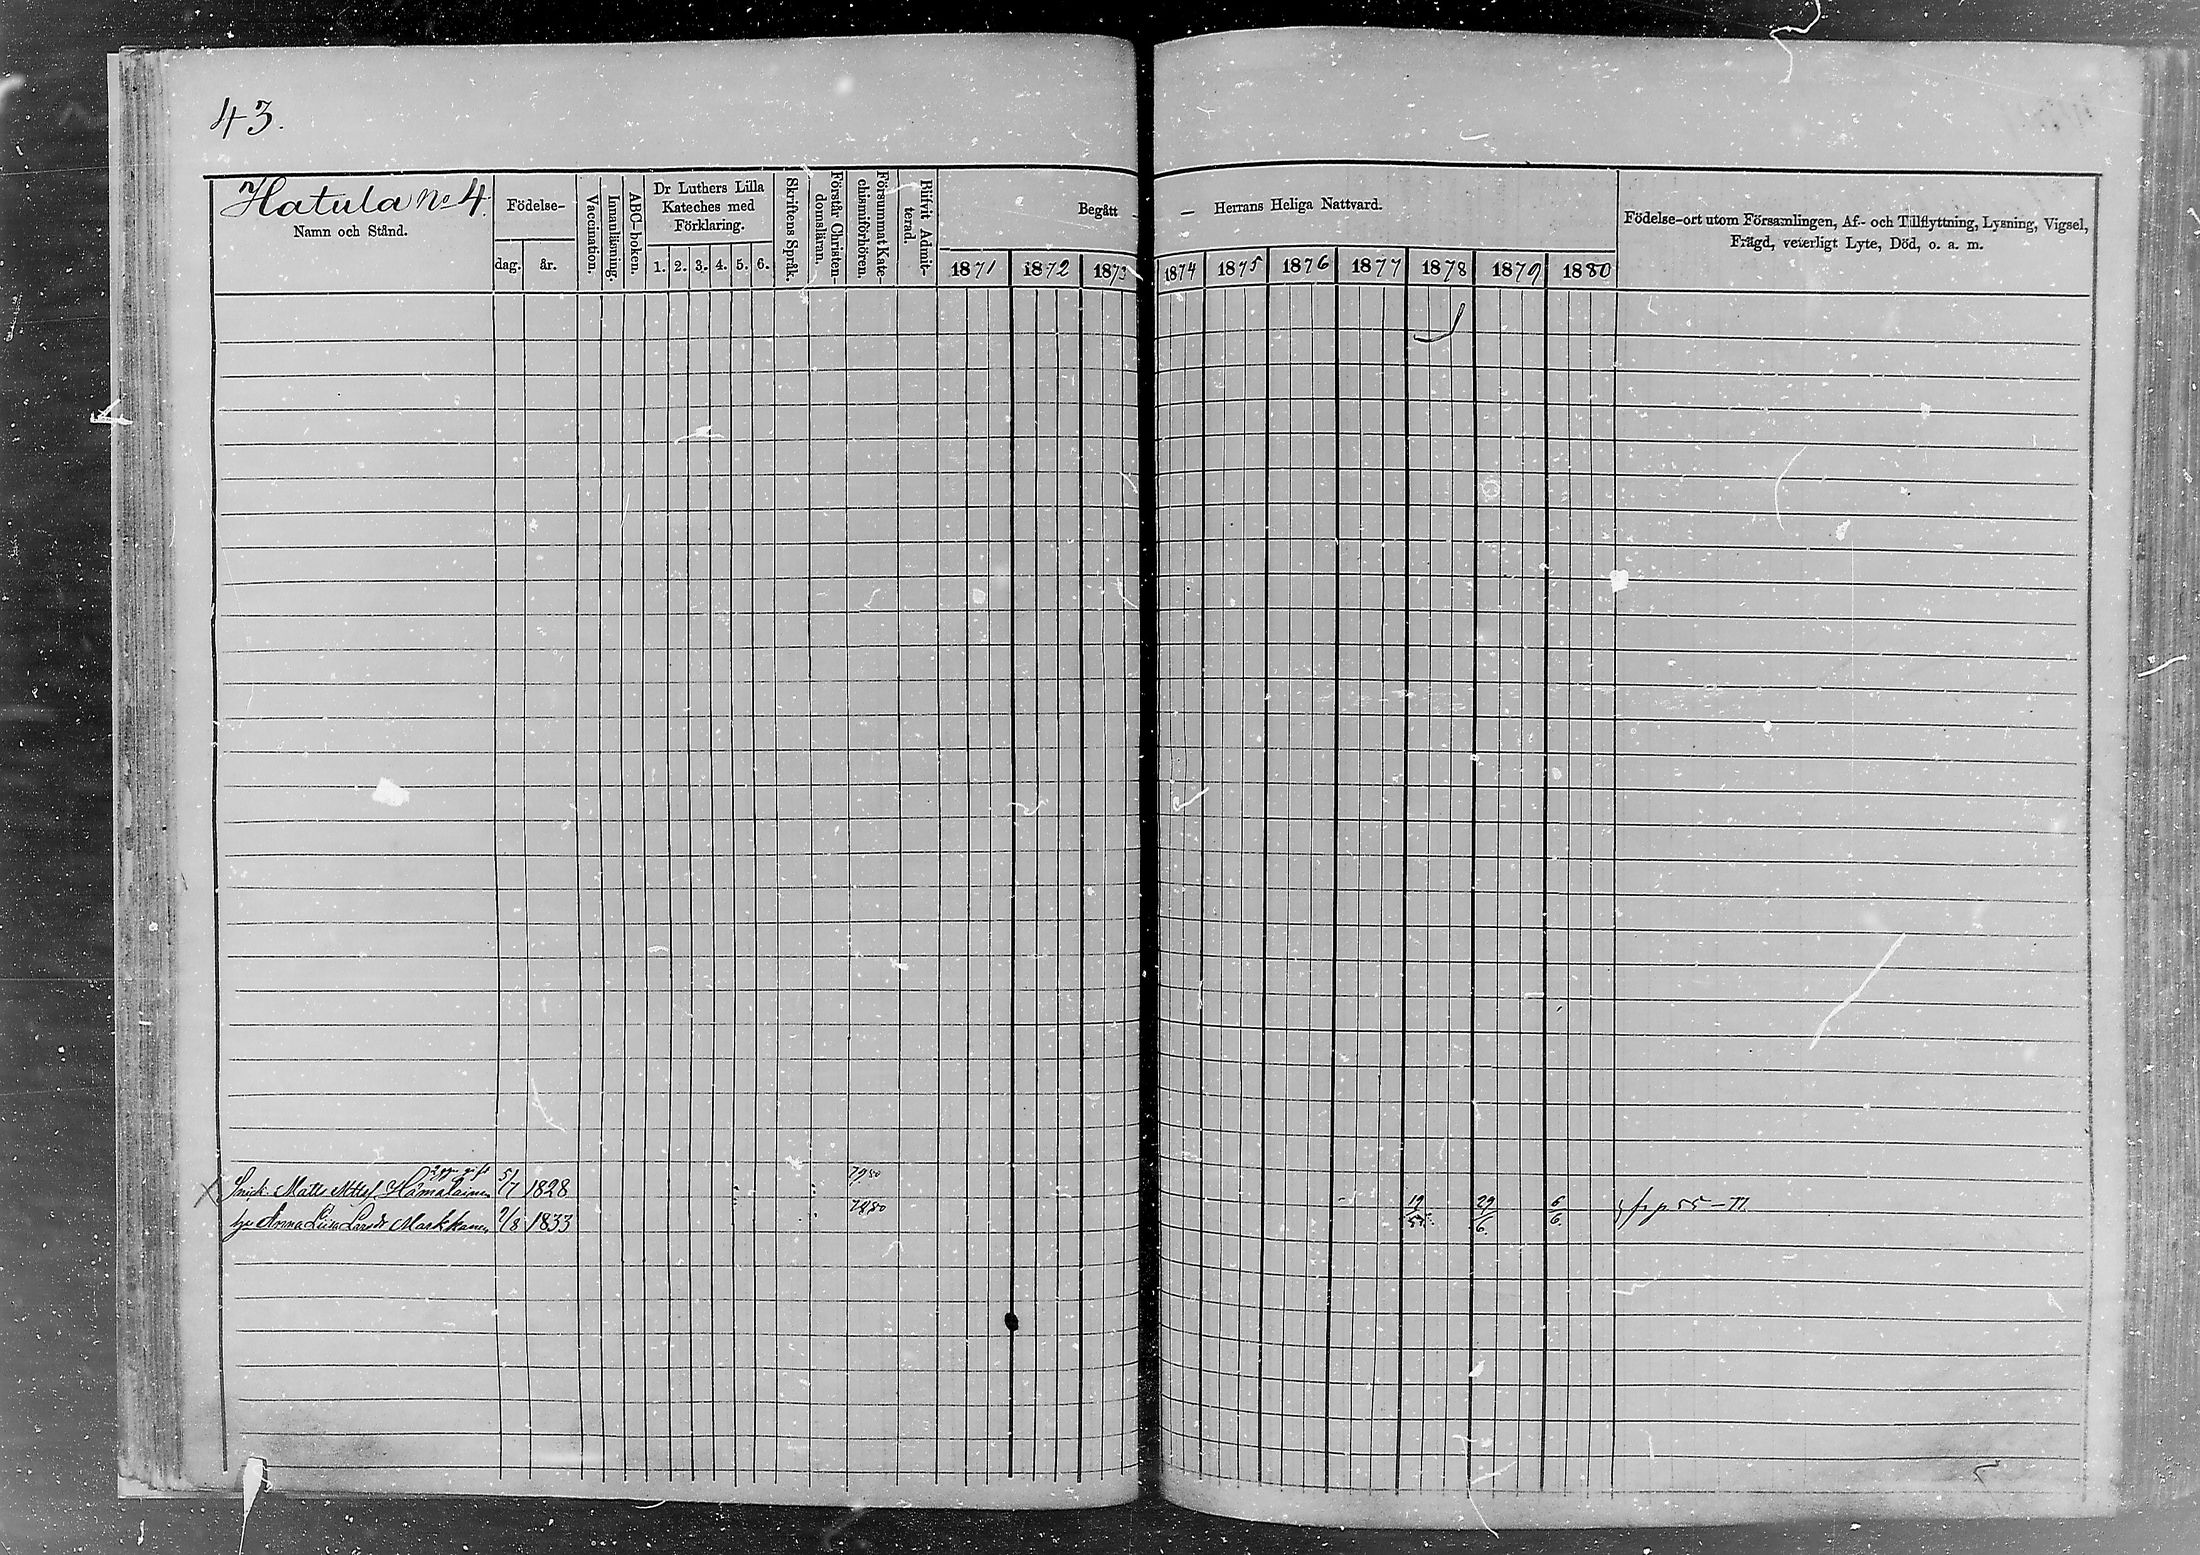 43.
Hatula No 4.
Namn och Stånd.
Födelse-
dag. år.
Vaccination.
Innanläsning.
ABC-boken.
Dr Luthers Lilla
Kateches med
Förklaring.
1. 2. 3. 4. 5. 6.
Skriftens Språk.
Förstår Christen-
domsläran.
Försummat Kate-
chismiförhören.
Blifvit Admit-
terad.
Begått — Herrans Heliga Nattvard.
1871 1872 1873 1874 1875 1876 1877 1878 1879 1880
Födelse-ort utom Församlingen, Af- och Tillflyttning, Lysning, Vigsel,
Frägd, veterligt Lyte, Död, o. a. m.
2 ggr gift
Snick. Matts Hämäläinen 5/7 1828 79 80
Anna Lisa Larsdr Markkanen 2/8 1833 78 80 29/6 6/6 fr p 55 - 77